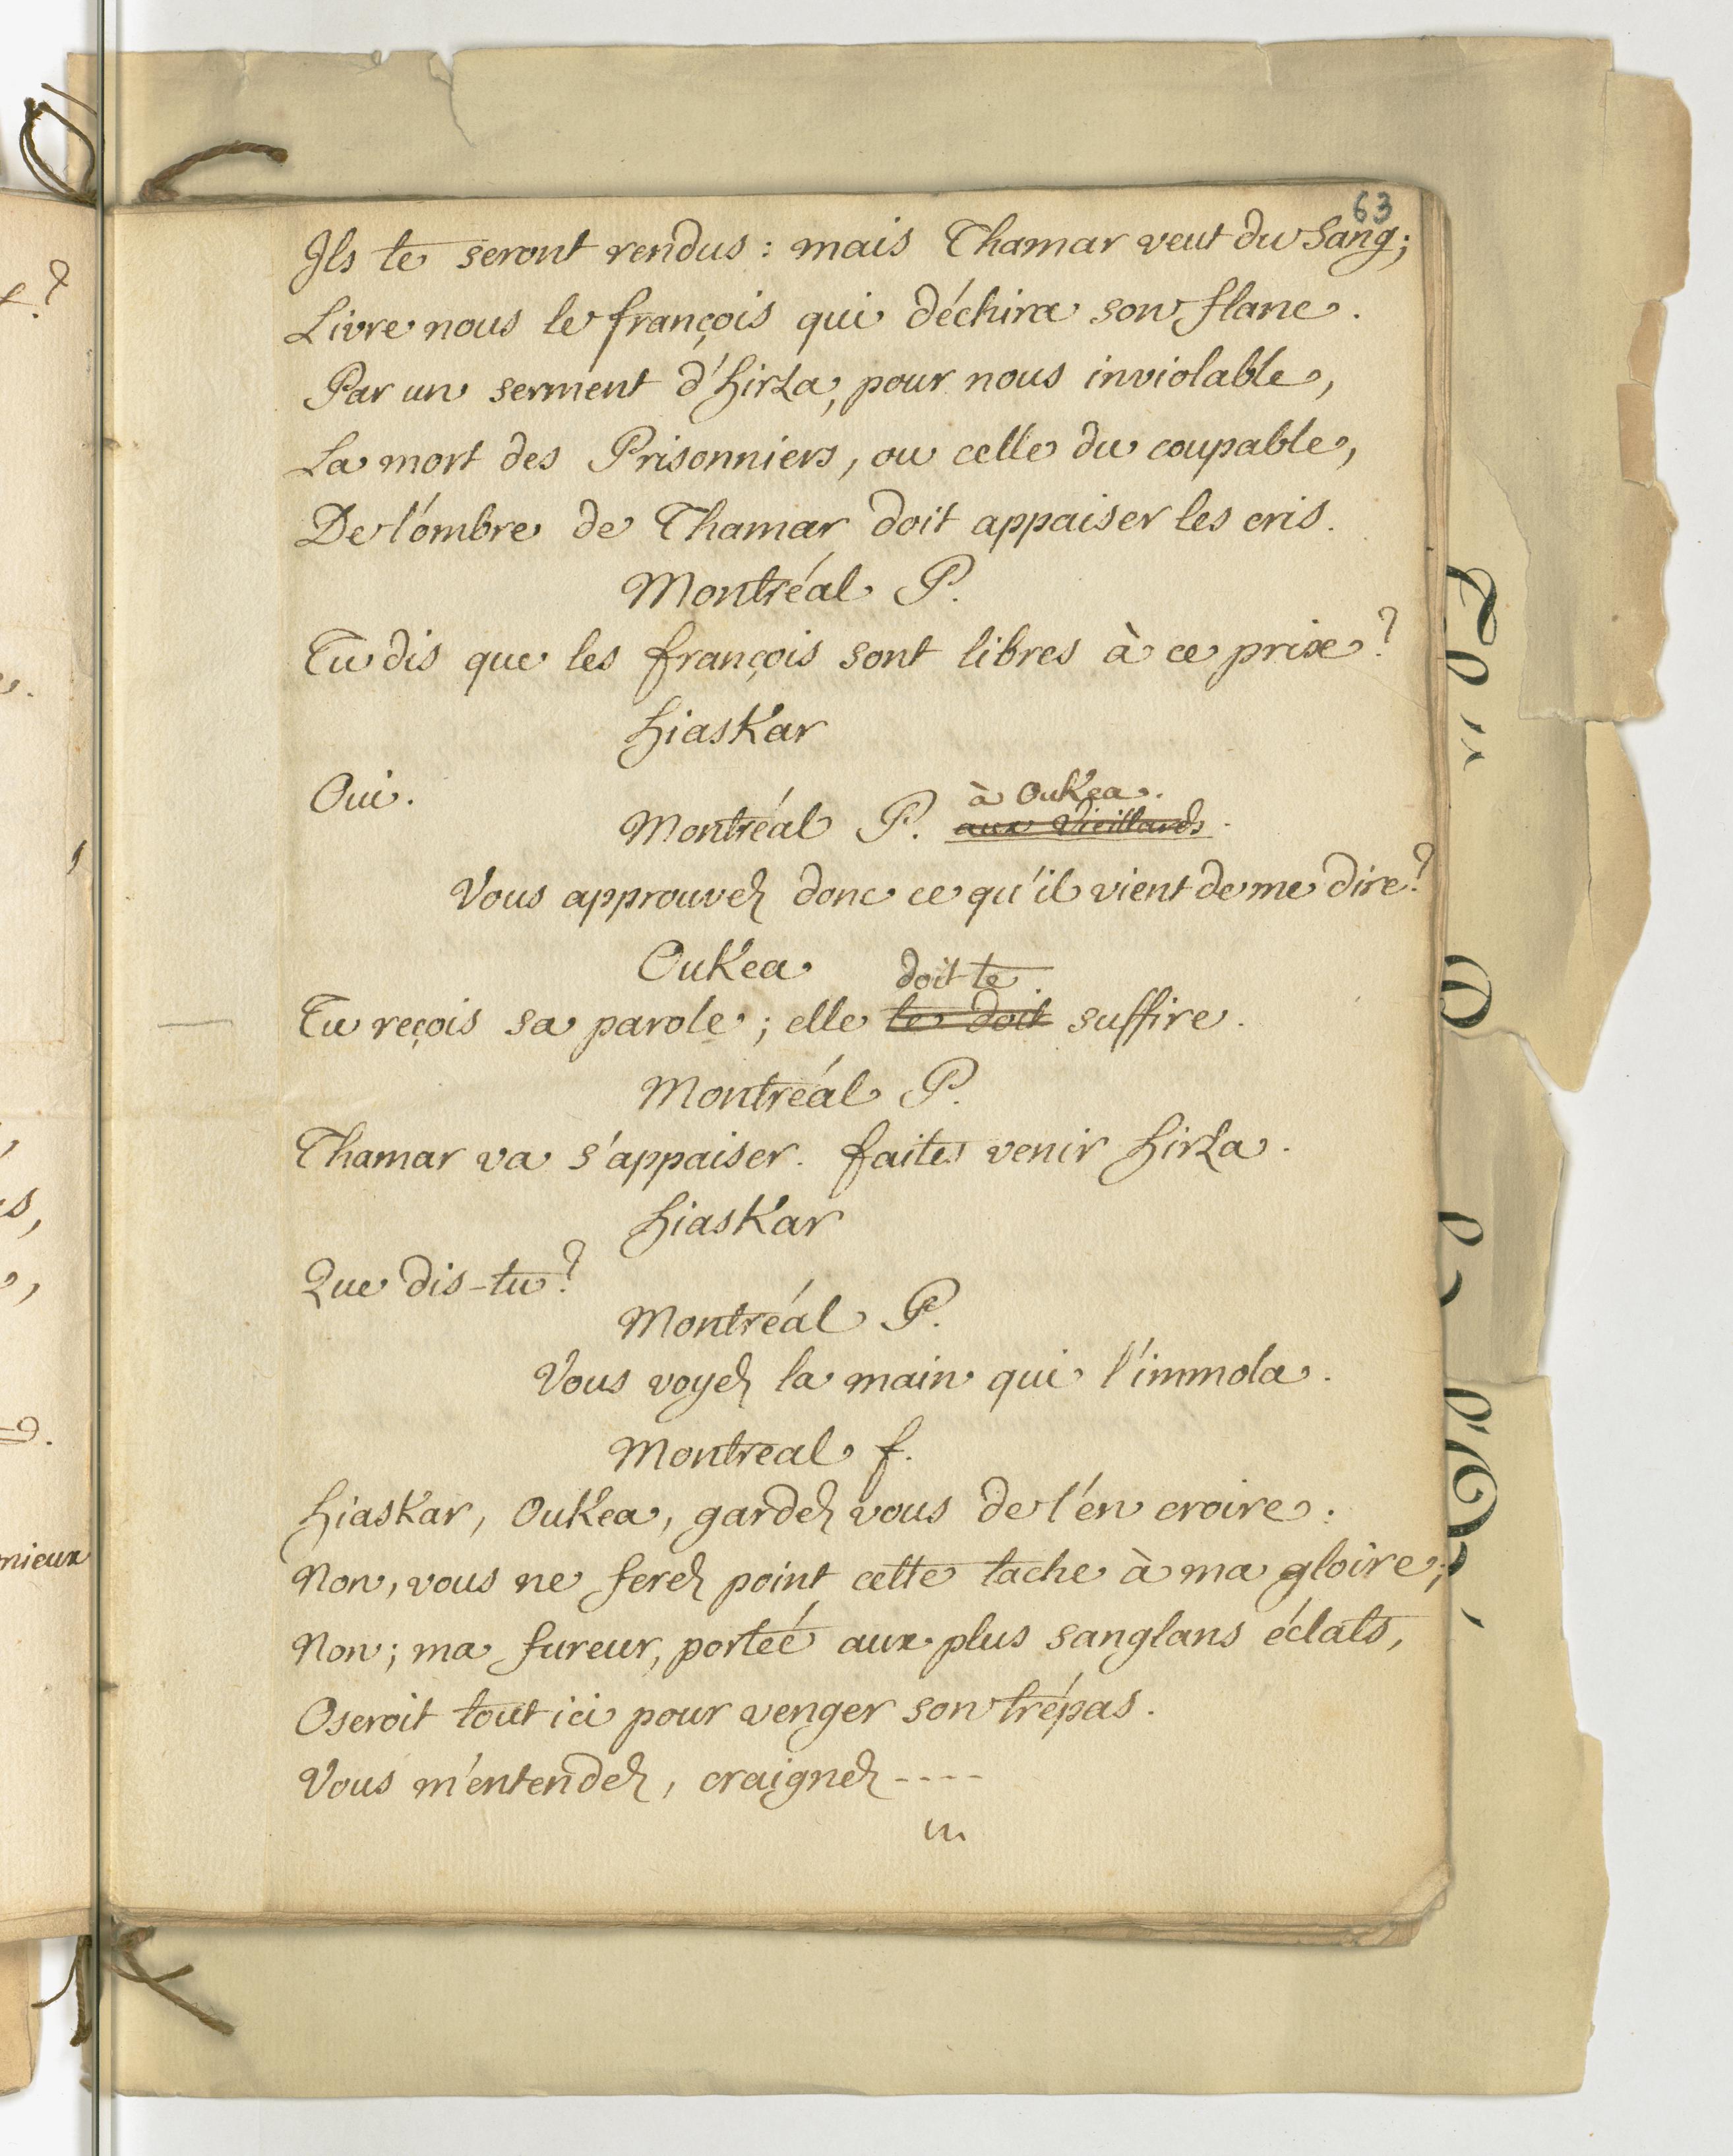 63
Ils te seront rendus : mais Thamar veut du Sang ;
Livre nous le françois qui déchira son flanc.
Par un serment d'hirza, pour nous inviolable,
La mort des Prisonniers, ou celle du coupable,
De l'ombre de Thamar doit appaiser les cris.
Montréal P.
Tu dis que les françois sont libres à ce prix ?
hiaskar
Oui.
à Oukea.
Montréal P. aux Vieillards.
Vous approuvez donc ce qu'il vient de me dire ?
Oukea
doit te
Tu reçois sa parole ; elle te doit suffire.
Montréal P.
Thamar va s'appaiser. faites venir hirza.
hiaskar
Que dis-tu ?
Montréal P.
Vous voyez la main qui l'immola.
Montreal f.
hiaskar, Oukea, gardez vous de l'en croire :
Non, vous ne ferez point cette tache à ma gloire ;
Non ; ma fureur, porteé aux plus sanglans éclats,
Oseroit tout ici pour venger son trépas.
Vous m'entendez, craignez ----
mieux